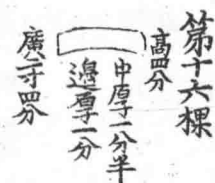 第十六棵
高四分
中厚一分半
邊厚一分
廣寸四分